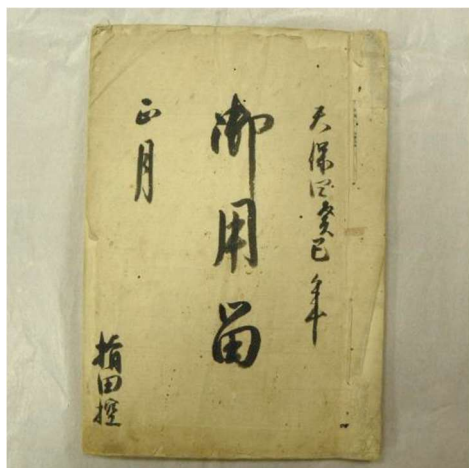 天保四癸巳年
御用留
正月
指田控